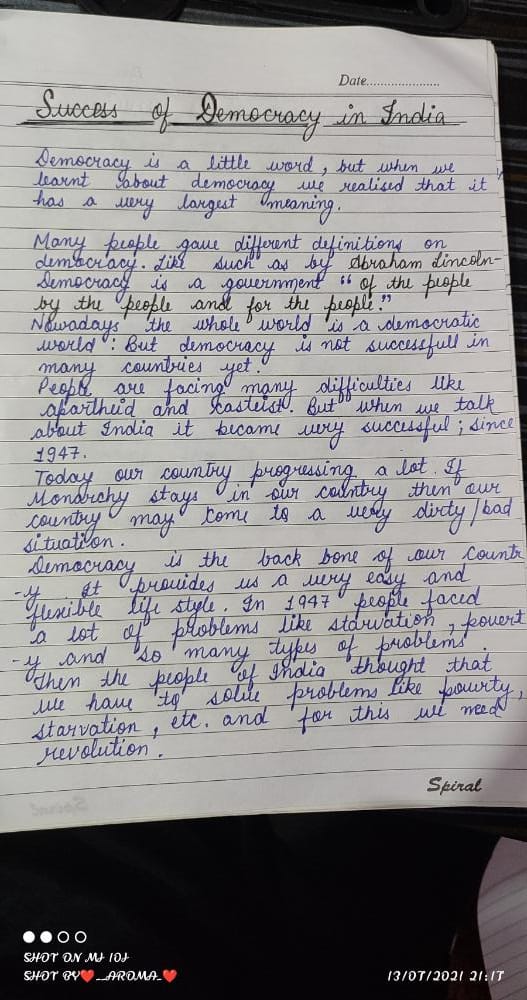 Date.....................
Success of Democracy in India
Democracy is a little word, but when we
learnt about democracy we realised that it
has a very largest meaning.
Many people gave different definitions on
democracy. Like such as by Abraham Lincoln-
Democracy is a government “ of the people
by the people and for the people.”
Nowadays the whole world is a democratic
world : But democracy is not successfull in
many countries yet.
People are facing many difficulties like
apartheid and casteist. But when we talk
about India it became very successful ; since
1947.
Today our country progressing a lot. If
Monarchy stays in our country then our
country may come to a very dirty/bad
situation.
Democracy is the back bone of our Countr
-y. It provides us a very easy and
flexible life style. In 1947 people faced
a lot of problems like starvation, povert
-y and so many types of problems.
Then the people of India thought that
we have to solve problems like powrty,
starvation, etc. and for this we need
revolution.
Spiral
SHOT ON MI 10I
SHOT BY❤️_AROMA_❤️
13/07/2021 21:17